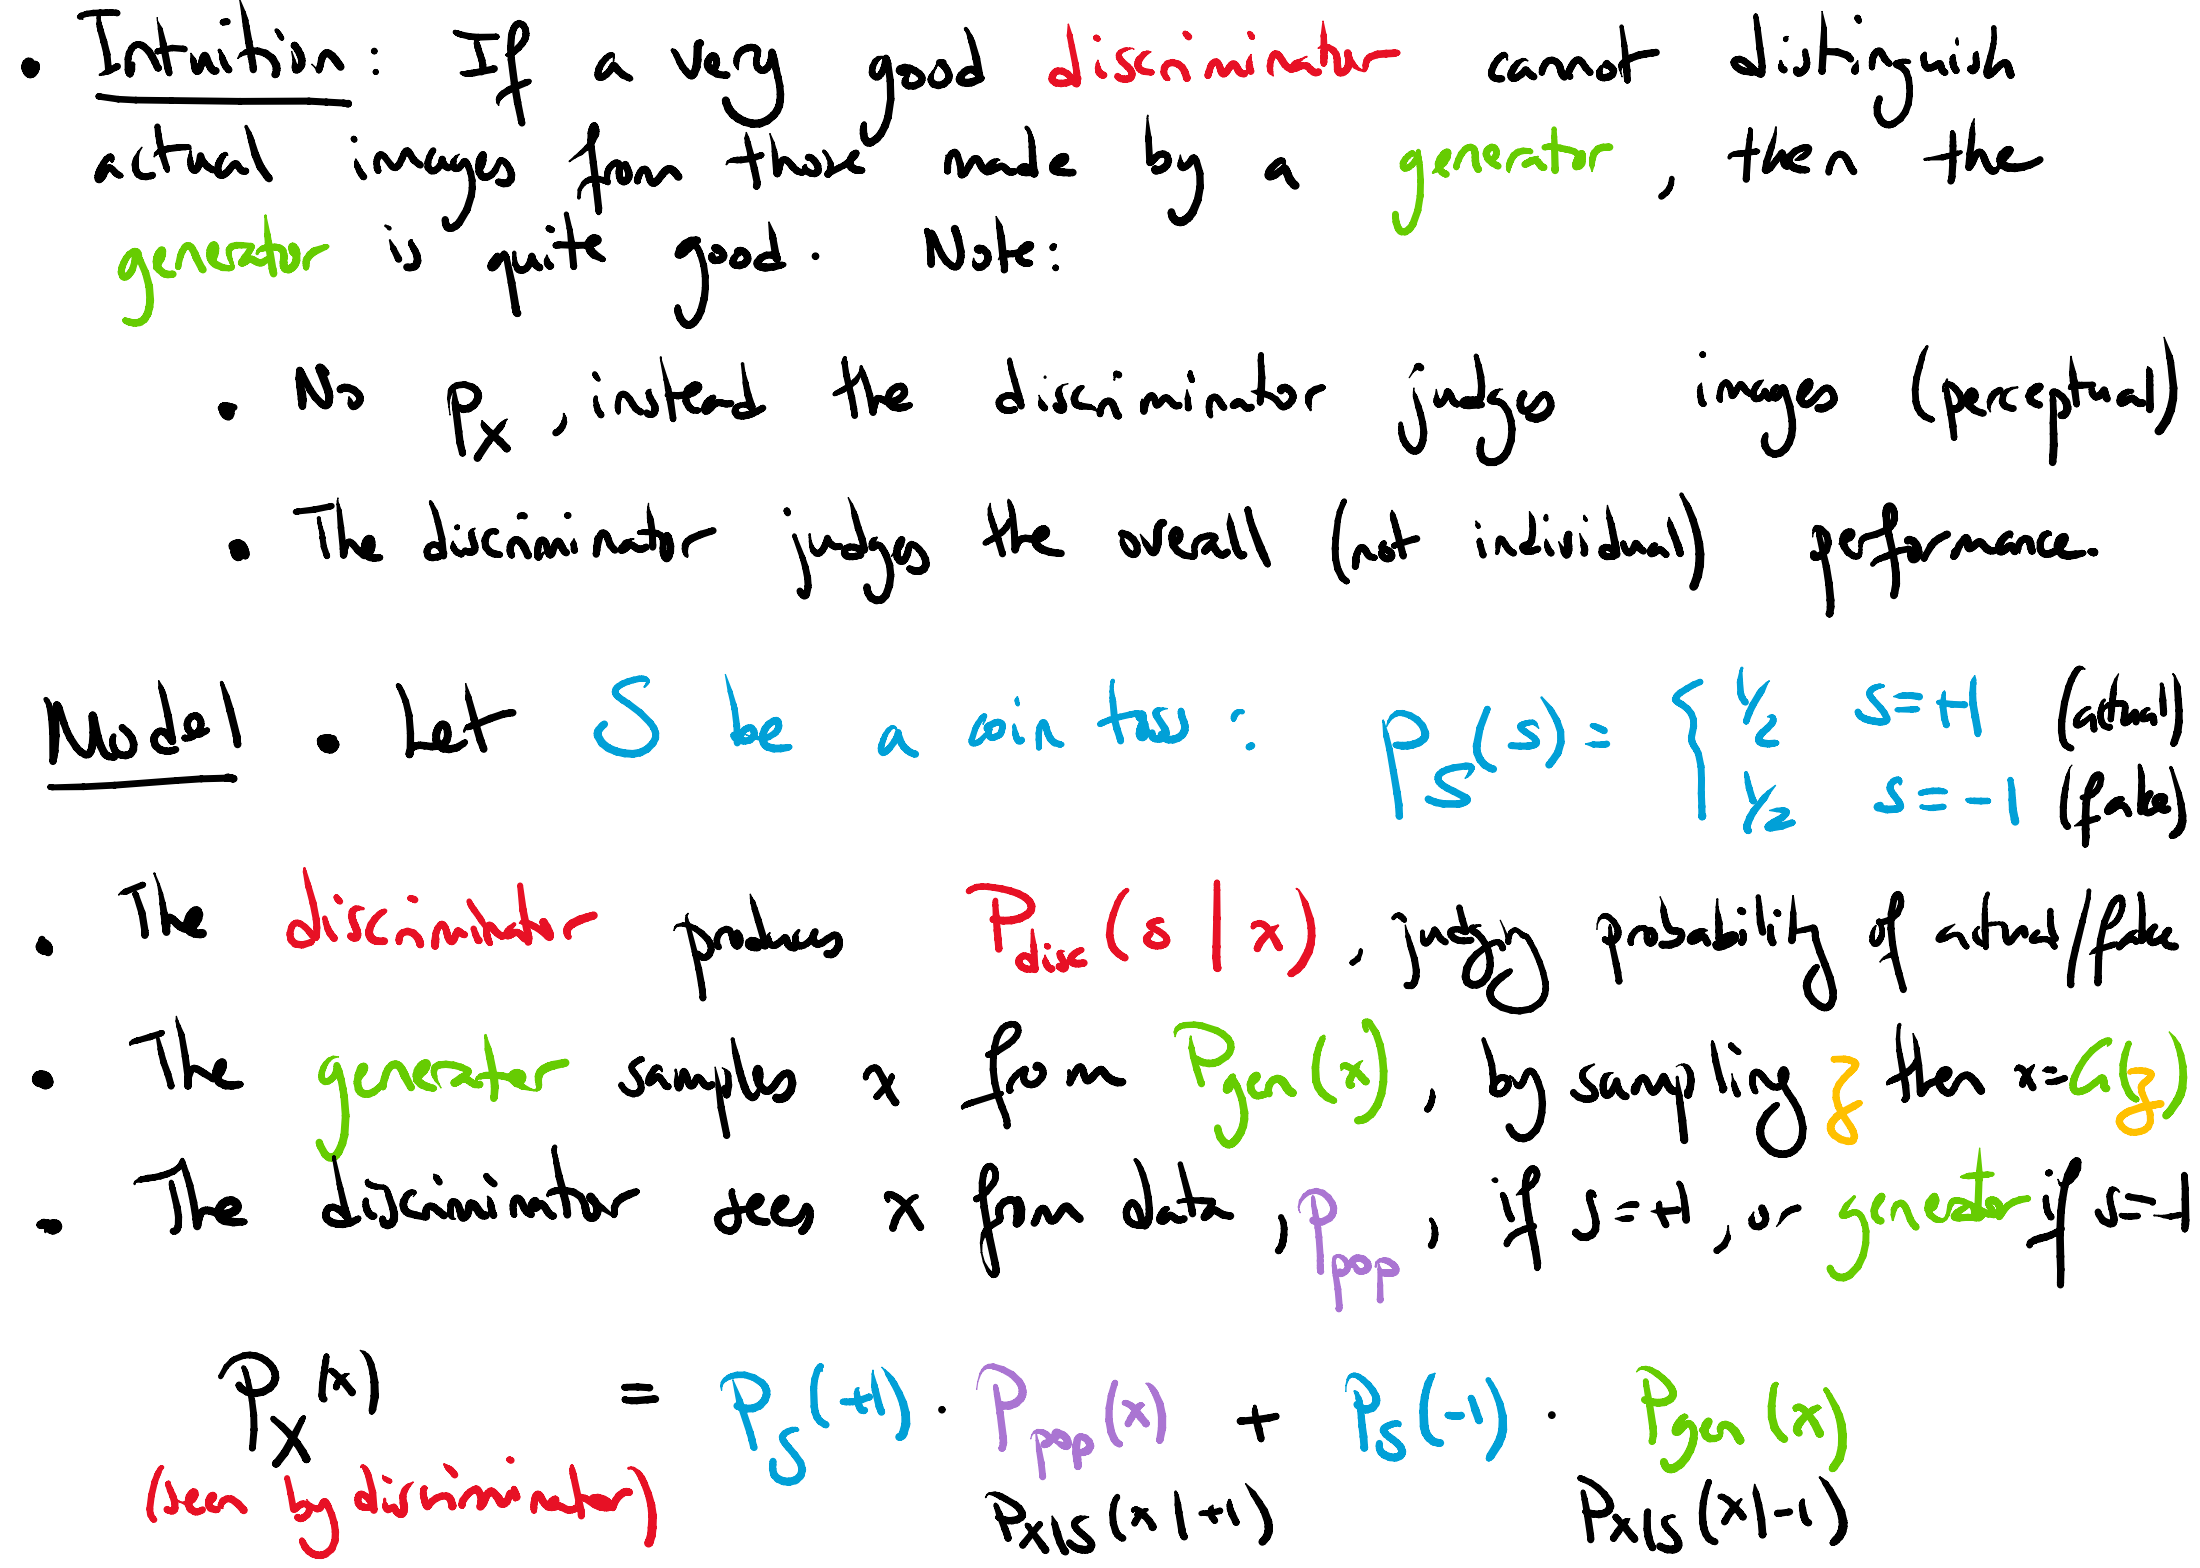 • Intuition: If a very good discriminator cannot distinguish
actual images from those made by a generator, then the
generator is quite good. Note:
• No p_X, instead the discriminator judges images (perceptual)
• The discriminator judges the overall (not individual) performance.
Model • Let S be a coin toss: p_S(s) = { 1/2 s=+1 (actual)
1/2 s=-1 (fake)
• The discriminator produces P_disc(s|x), judging probability of actual/fake
• The generator samples x from P_gen(x), by sampling z then x=G(z)
• The discriminator sees x from data, P_pop, if s=+1, or generator if s=-1
P_X(x) = P_S(+1) · P_pop(x) + P_S(-1) · P_gen(x)
(seen by discriminator) P_X|S(x|+1) P_X|S(x|-1)